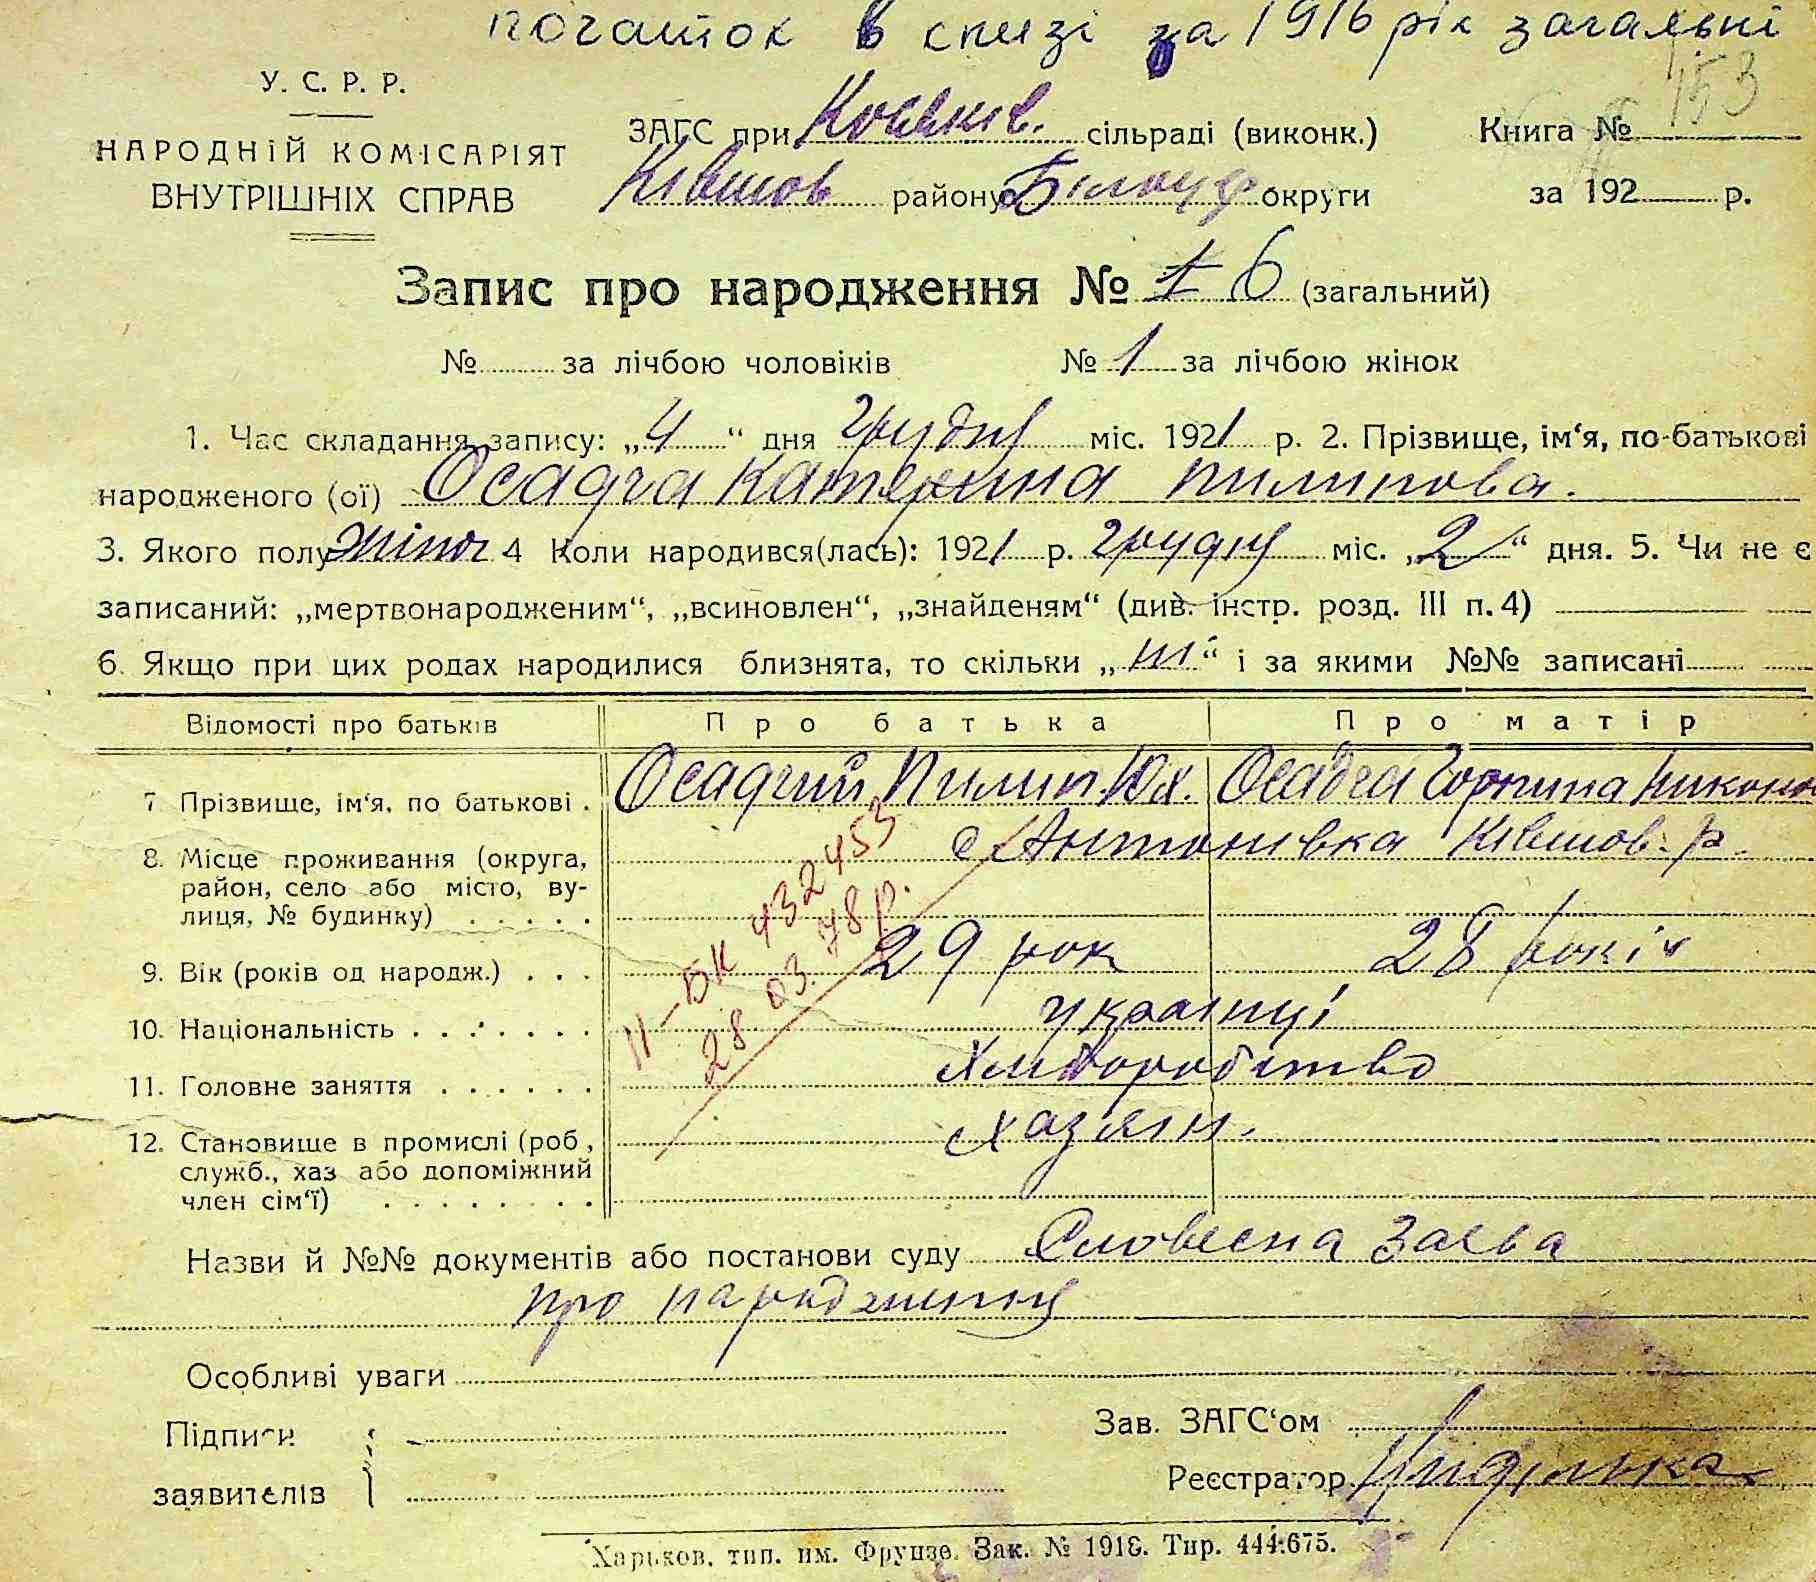 початок в спизі за 1916 рік загальні
У. С. Р. Р.
153
НАРОДНІЙ КОМІСАРІЯТ
ВНУТРІШНІХ СПРАВ
ЗАГС при сільраді (виконк.) Книга №
району округи за 192 р.
Запис про народження № 6 (загальний)
№ за лічбою чоловіків № 1 за лічбою жінок
1. Час складання запису: „4“ дня грудня міс. 1921 р. 2. Прізвище, ім‘я, по-батькові
народженого (ої) Осадча Катерина Пилипова.
3. Якого полу жіноч 4 Коли народився(лась): 1921 р. грудня міс. „2“ дня. 5. Чи не є
записаний: „мертвонародженим“, „всиновлен“, „знайденям“ (див. інстр. розд. III п. 4)
6. Якщо при цих родах народилися близнята, то скільки „ні“ і за якими №№ записані
Відомості про батьків Про батька Про матір
7 Прізвище, ім‘я, по батькові . Осадчий Пилип Юх. Осадча Горпина Никон
8. Місце проживання (округа, с. Антонівка
район, село або місто, ву-
лиця, № будинку) . . . . .
9. Вік (років од народж.) . . . 29 рок 28 років
II-БК 432453
28 03. 78 р.
10. Національність . . . . . . . українці
11. Головне заняття . . . . . . Хліборобство
12. Становище в промислі (роб, хазяін.
служб., хаз або допоміжний
член сім‘ї) . . . . . . . .
Назви й №№ документів або постанови суду Словесна заява
про народження
Особливі уваги
Підписи
заявителів
Зав. ЗАГС‘ом
Реєстратор
Харьков, тип. им. Фрунзе. Зак. № 1918. Тир. 444.675.